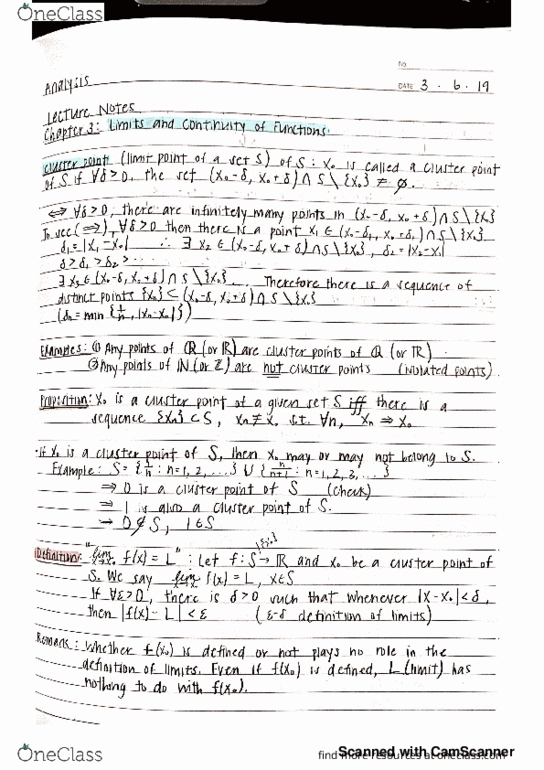 OneClass
No.
DATE 3 . 6 . 19
Analysis
Lecture Notes
Chapter 3: Limits and Continuity of Functions.
Cluster point (limit point of a set S) of S : x₀ is called a cluster point
of S if ∀δ>0, the set (x₀-δ, x₀+δ) ∩ S \ {x₀} ≠ ∅.
⇔ ∀δ>0, there are infinitely many points in (x₀-δ, x₀+δ) ∩ S \ {x₀}
To see (⇒), ∀δ>0 then there is a point x₁ ∈ (x₀-δ, x₀+δ) ∩ S \ {x₀}
δ₁=|x₁-x₀| ∴ ∃ x₂ ∈ (x₀-δ, x₀+δ) ∩ S \ {x₀}, δ₂=|x₂-x₀|
δ > δ₁ > δ₂ > ...
∃ x₃ ∈ (x₀-δ, x₀+δ) ∩ S \ {x₀}. Therefore there is a sequence of
distinct points {xₙ} ⊂ (x₀-δ, x₀+δ) ∩ S \ {x₀}
(δₙ = min {1/n, |xₙ-x₀|})
Examples: ① Any points of ℚ (or ℝ) are cluster points of ℚ (or ℝ)
② Any points of ℕ (or ℤ) are not cluster points (isolated points).
Proposition: x₀ is a cluster point of a given set S iff there is a
sequence {xₙ} ⊂ S, xₙ ≠ x₀ s.t. ∀n, xₙ → x₀
· If x₀ is a cluster point of S, then x₀ may or may not belong to S.
Example: S = {1/n : n=1, 2, ...} ∪ {n/n+1 : n=1, 2, 3, ...}
⇒ 0 is a cluster point of S (check)
⇒ 1 is also a cluster point of S.
→ 0 ∉ S, 1 ∈ S
Definition: "lim x→x₀ f(x) = L" : Let f: S \ {x₀} → ℝ and x₀ be a cluster point of
S. We say lim x→x₀ f(x) = L, x∈S
If ∀ε>0, there is δ>0 such that whenever |x-x₀|<δ,
then |f(x) - L| < ε (ε-δ definition of limits)
Remark: Whether f(x₀) is defined or not plays no role in the
definition of limits. Even if f(x₀) is defined, L (limit) has
nothing to do with f(x₀).
OneClass
find more resources at oneclass.com
Scanned with CamScanner